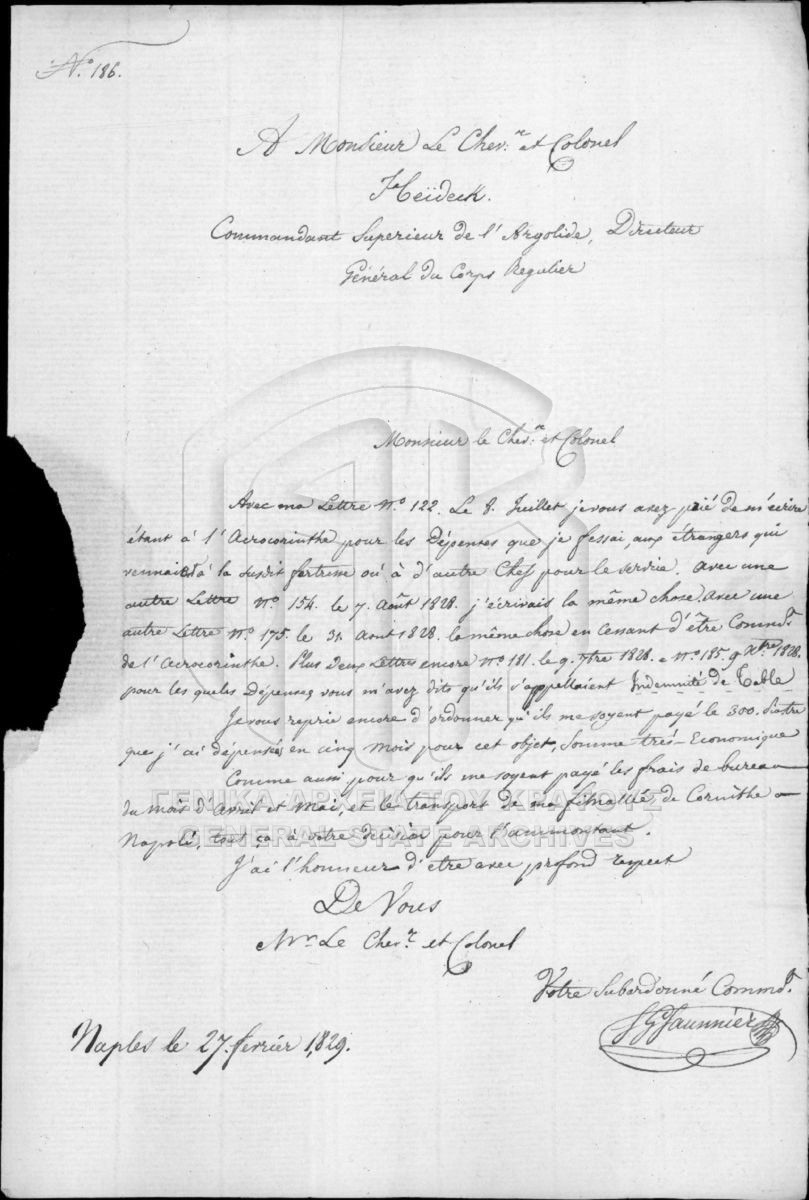 N.o 186.
A Monsieur Le Chev.re et Colonel
Heïdeck.
Commandant Superieur de l'Argolide, Directeur
Général du Corps Regulier
Monsieur le Chev.re et Colonel
Avec ma Lettre N.o 122. Le 8. Juillet je vous avez prié de m'écrire
étant à l'Acrocorinthe pour les Dépenses que je fessai, aux étrangers qui
vennaient à la susdit fortresse où à d'autre Chef pour le service. avec une
autre Lettre N.o 154. le 7. Août 1828. j'écrivais la même chose, avec une
autre Lettre N.o 175. le 31. Aout 1828. le même chose en cessant d'être Commd.t
de l'Acrocorinthe. Plus deux Lettres encore N.o 181. le 9. 7tre 1828. e N.o 185. 9 Xtre. 1828.
pour les quels Dépenses vous m'avez dite qu'ils s'appellaient Indemnité de Table
Je vous reprie encore d'ordonner qu'ils me soyent payé le 300. Piastre
que j'ai dépensées en cinq mois pour cet objet, Somme trés-Economique
Comme aussi pour qu'ils me soyent payé les frais de bureau
du mois d'Avril et Mai, et le transport de ma de Corinthe a
Napoli, tout ça à vôtre decision pour l'aumontant.
J'ai l'honneur d'être avec profond respect
De Vous
Mr. Le Chev.re et Colonel
Votre Subordonné Commd.t
Naples le 27. fevrier 1,829.
ΓΕΝΙΚΑ ΑΡΧΕΙΑ ΤΟΥ ΚΡΑΤΟΥΣ
GENERAL STATE ARCHIVES